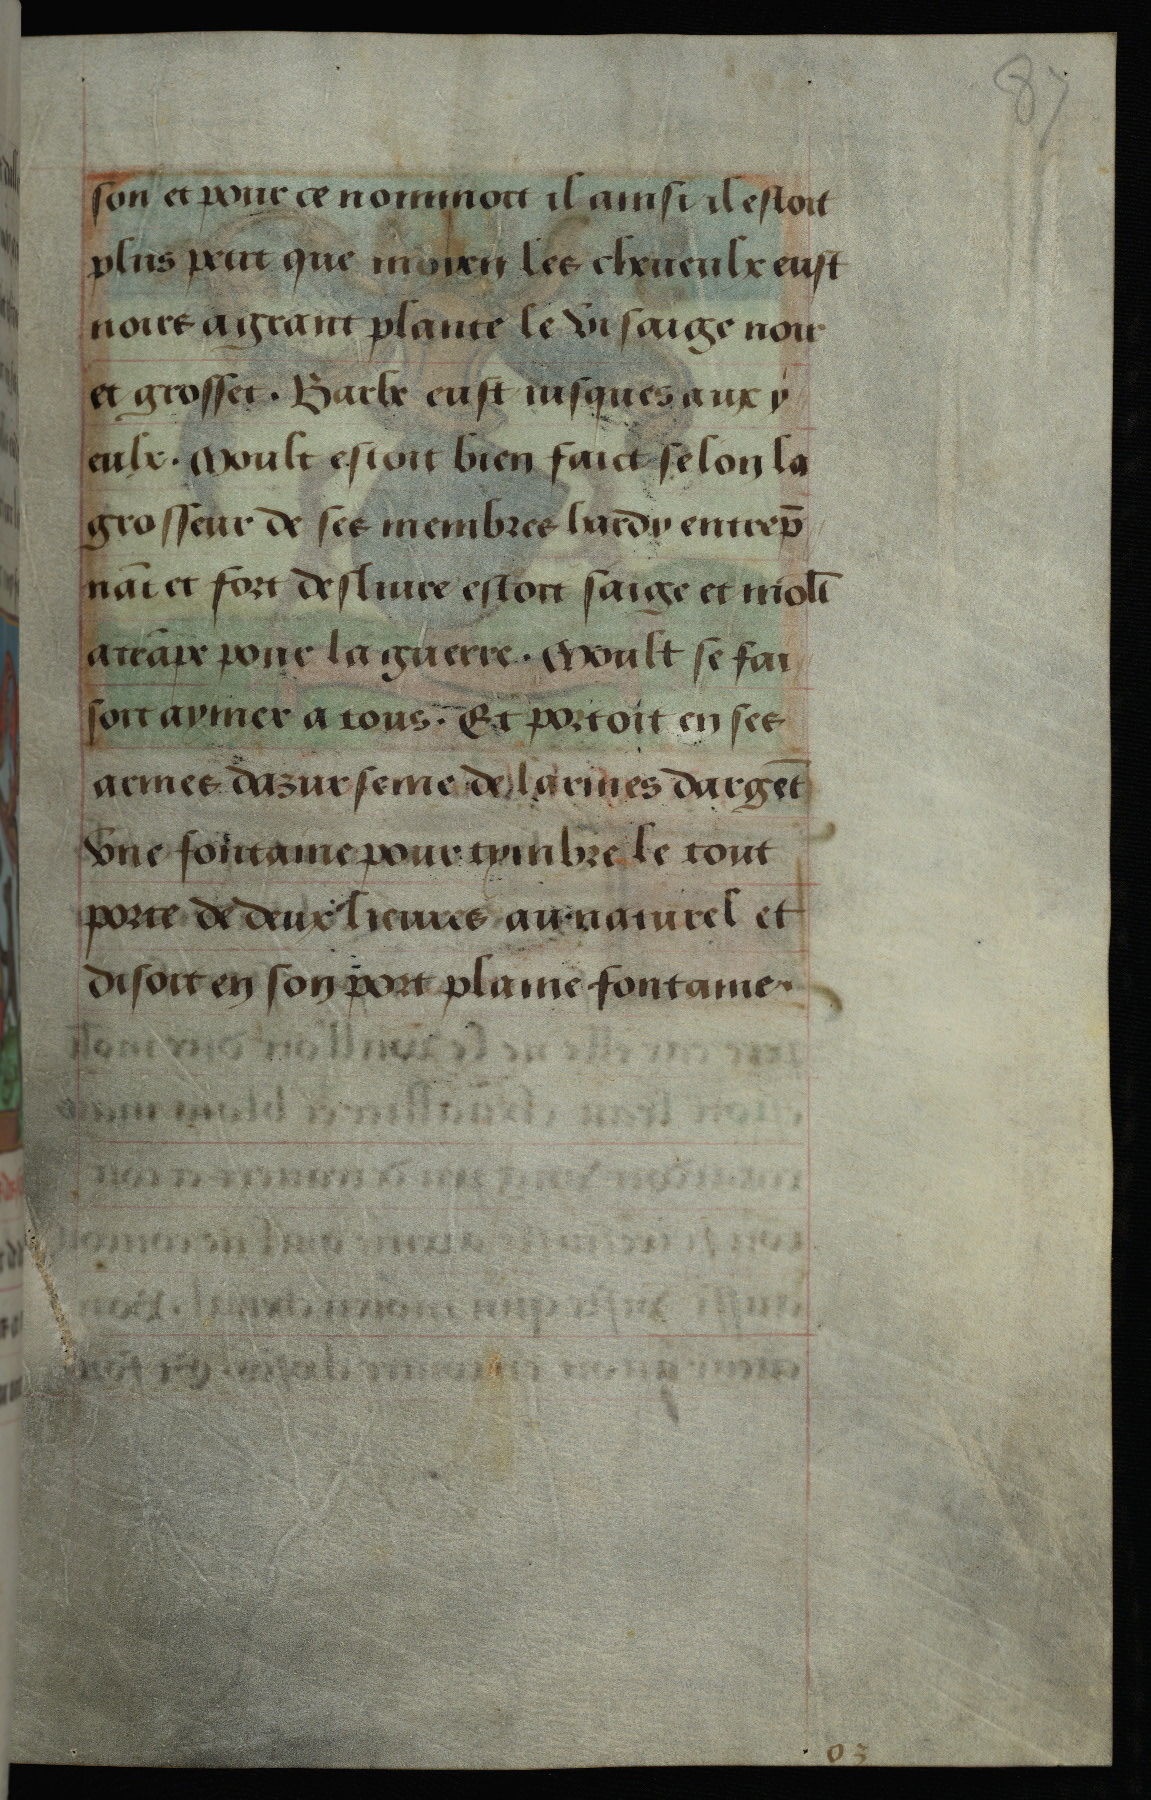 87
son et pour ce nommoit il ainsi il estoit
plus petit que moien les cheueulx eust
noirs a grant plante le visaige noir
et grosset. Barbe eust iusques aux y
eulx. Moult estoit bien faict selon la
grosseur de ses membres hardy entrep̄
nāt et fort desliure estoit saige et molt̄
atrāpe pour la guerre. Moult se fai
soit aymer a tous. Et portoit en ses
armes dazur seme de larmes dargēt
Vne fontaine pour tymbre le tout
porte de deux lieures au naturel et
disoit en son port plaine fontaine.
03